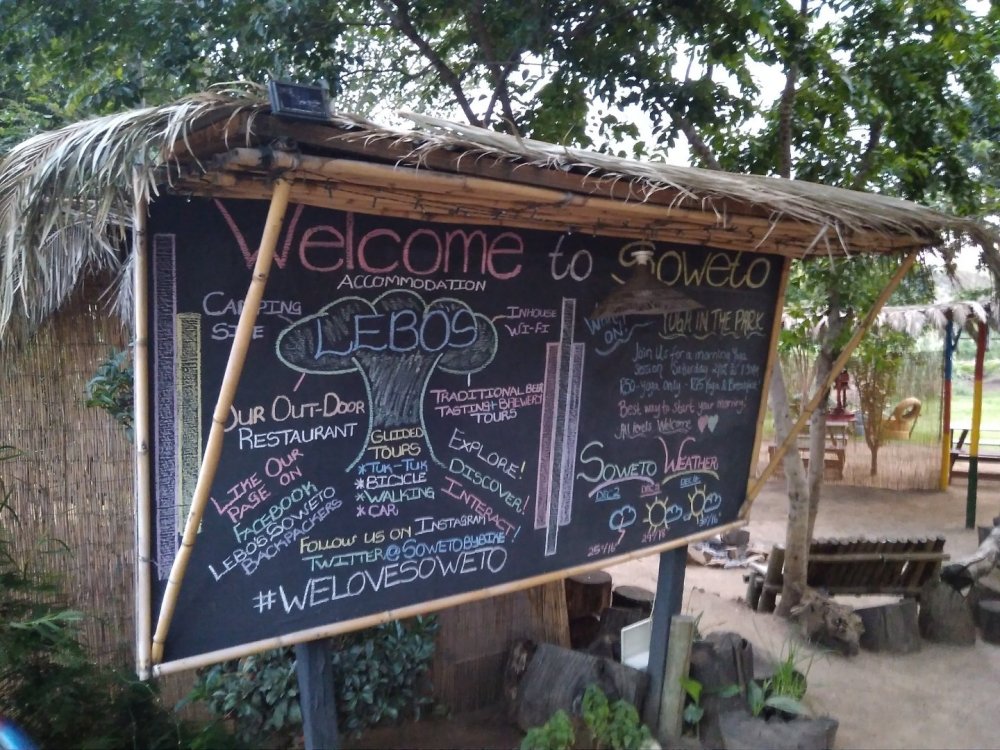 Welcome to Soweto
ACCOMMODATION
CAMPING
SITE
LEBOS
INHOUSE
WI-FI
OUR OUT-DOOR
RESTAURANT
TRADITIONAL BEER
TASTING + BREWERY
TOURS
GUIDED
TOURS
*TUK-TUK
*BICYCLE
*WALKING
*CAR
EXPLORE!
DISCOVER!
INTERACT!
LIKE OUR
PAGE ON
FACEBOOK
LEBO'S SOWETO
BACKPACKERS
FOLLOW US ON INSTAGRAM
TWITTER@SOWETOBYBIKE
#WELOVESOWETO
IN THE PARK
Join Us for a morning Yoga
Session Saturday
R50-Yoga only -
Best way to start your morning!
All levels Welcome
SOWETO WEATHER
DEC 2
25°/16°